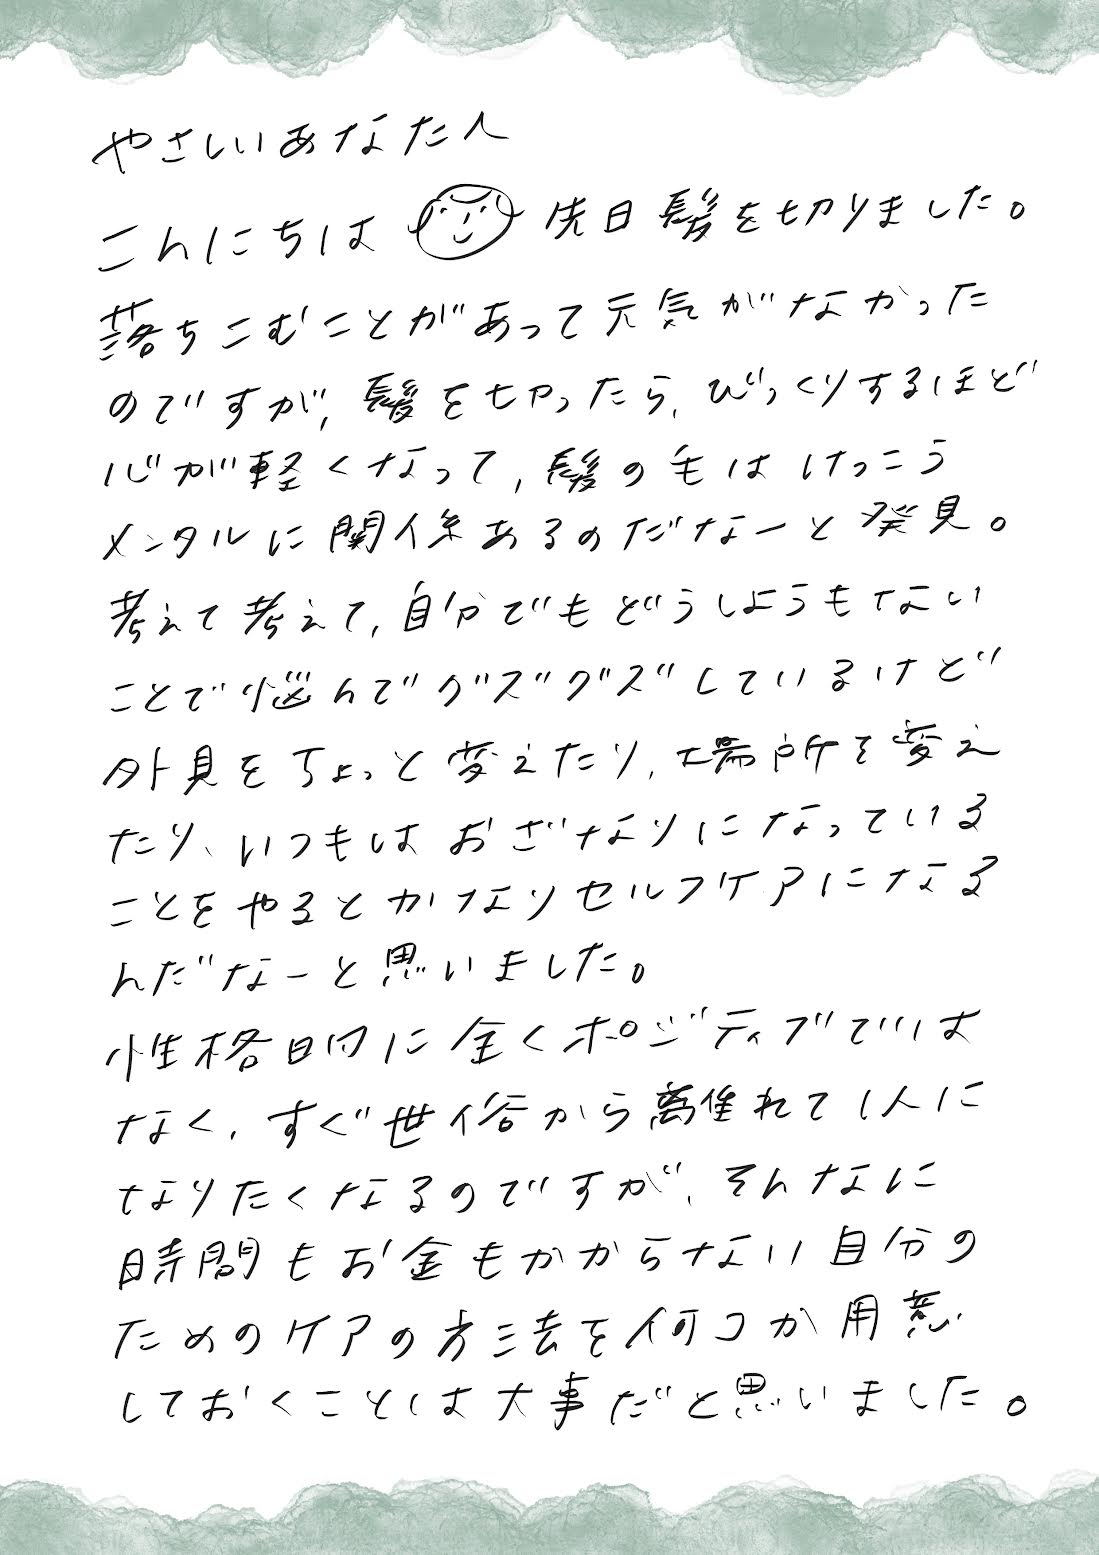 やさしいあなたへ
こんにちは 先日髪を切りました。
落ちこむことがあって元気がなかった
のですが、髪を切ったら、びっくりするほど
心が軽くなって、髪の毛はけっこう
メンタルに関係あるのだなーと発見。
考えて考えて、自分でもどうしようもない
ことで悩んでグズグズしているけど
外見をちょっと変えたり、場所を変え
たり、いつもはおざなりになっている
ことをやるとかなりセルフケアになる
んだなーと思いました。
性格的に全くポジティブでは
なく、すぐ世俗から離れて1人に
なりたくなるのですが、そんなに
時間もお金もかからない自分の
ためのケアの方法を何コか用意
しておくことは大事だと思いました。